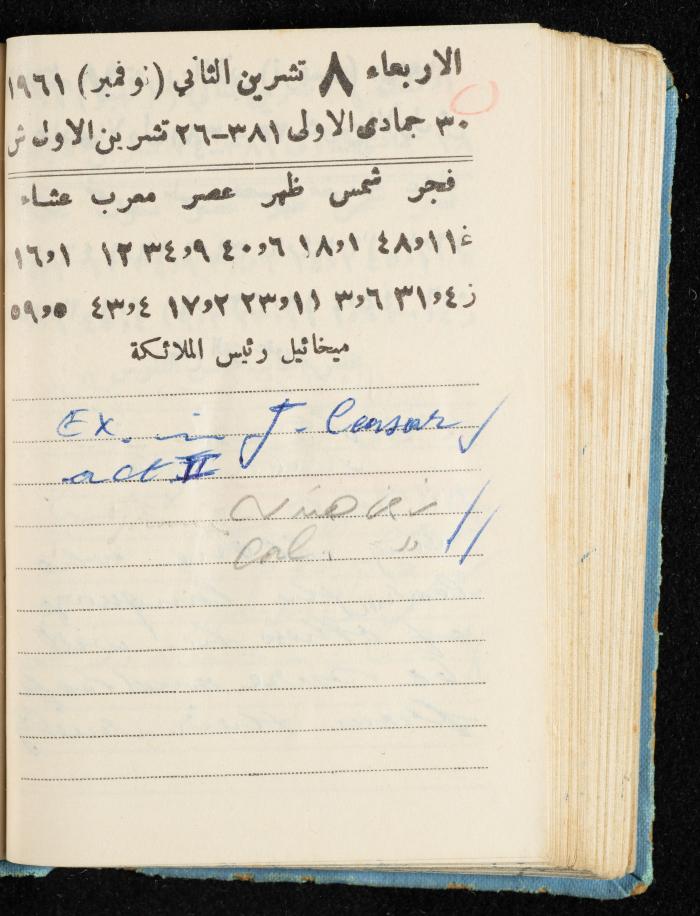 الاربعاء ٨ تشرين الثاني (نوفمبر) ١٩٦١
٣٠ جمادى الاولى ٣٨١-٢٦ تشرين الاول ش
فجر شمس ظهر عصر معرب عشاء
غ ١١و٤٨ ١و١٨ ٦و٤٠ ٩و٣٤ ١٢ ١و١٦
ز ٤و٣١ ٦و٣ ١١و٢٣ ٢و١٧ ٤و٤٣ ٥و٥٩
ميخائيل رئيس الملائكة
Ex. in J. Ceasar
act II